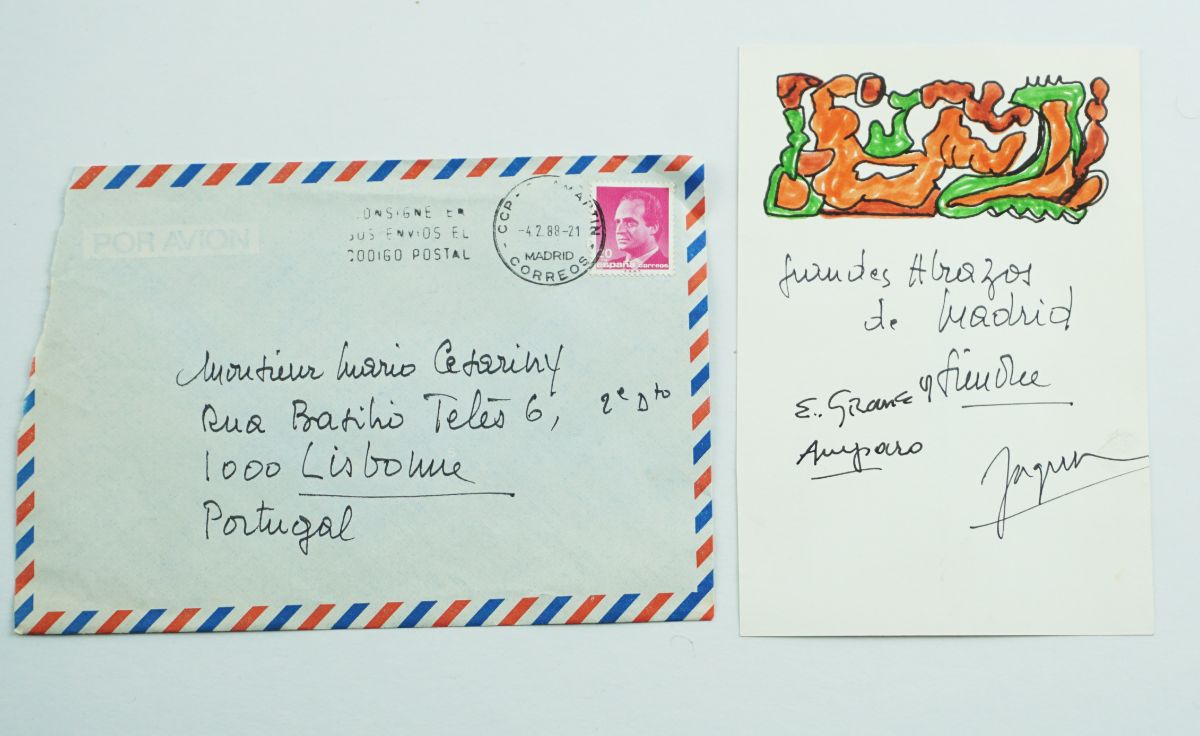 POR AVION
ONSIGNE EN
SUS ENVIOS EL
CODIGO POSTAL
-4.2.88-21
MADRID
CORREOS
20
españa correos
Monsieur Mario Cesariny
Rua Basilio Teles 6, 2º Dto
1000 Lisbonne
Portugal
Grandes Abrazos
de Madrid
E. Granell y
Amparo